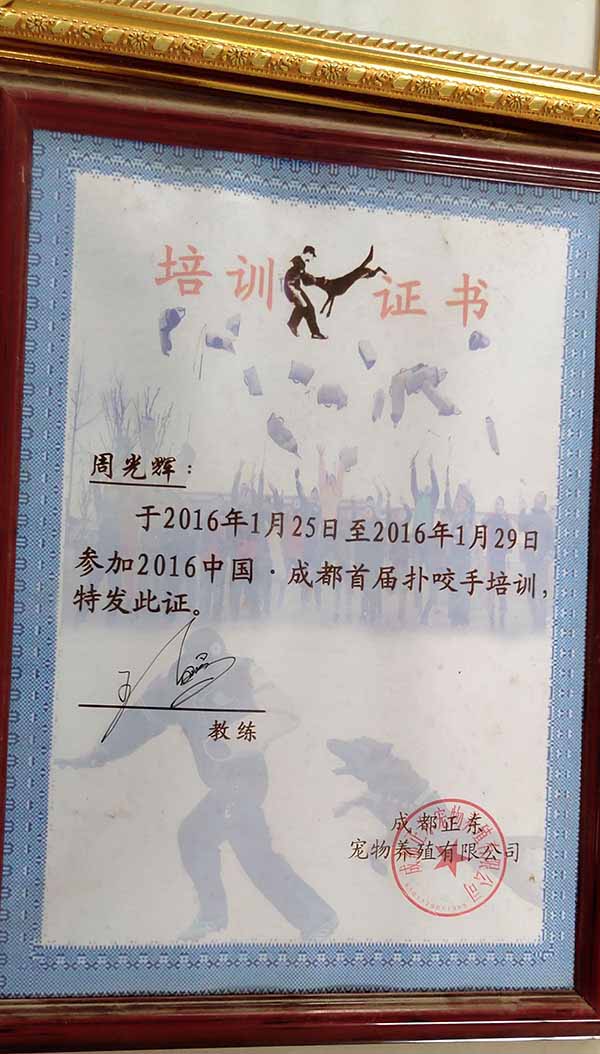 培训证书
周光辉：
于2016年1月25日至2016年1月29日
参加2016中国·成都首届扑咬手培训，
特发此证。
教练
成都正东
宠物养殖有限公司